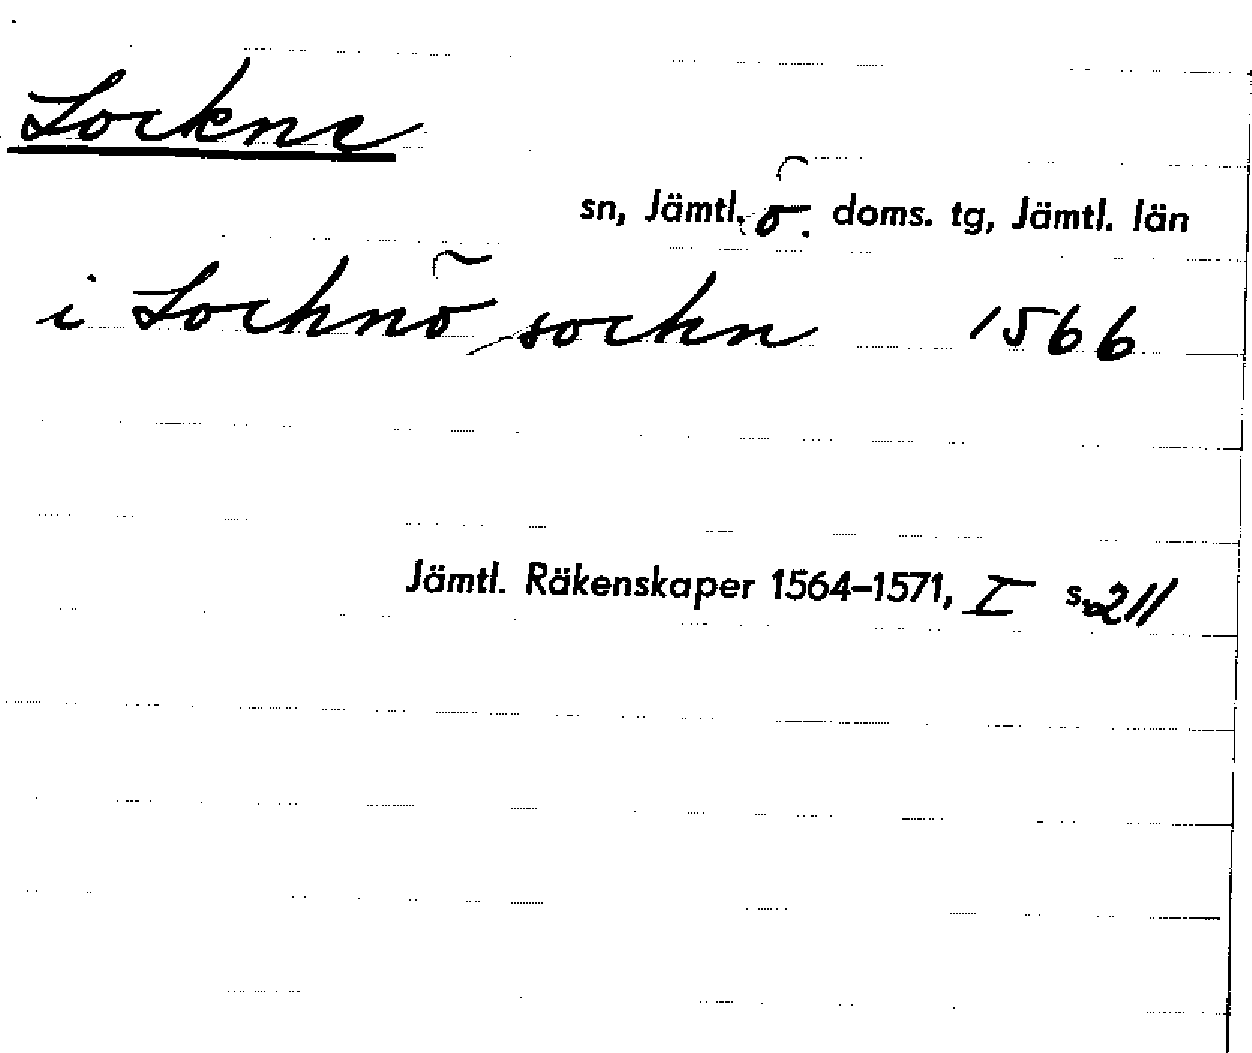 Lockne
sn, Jämtl. ö. doms. tg, Jämtl. län
i Locknö sockn 1566
Jämtl. Räkenskaper 1564–1571, I s. 211